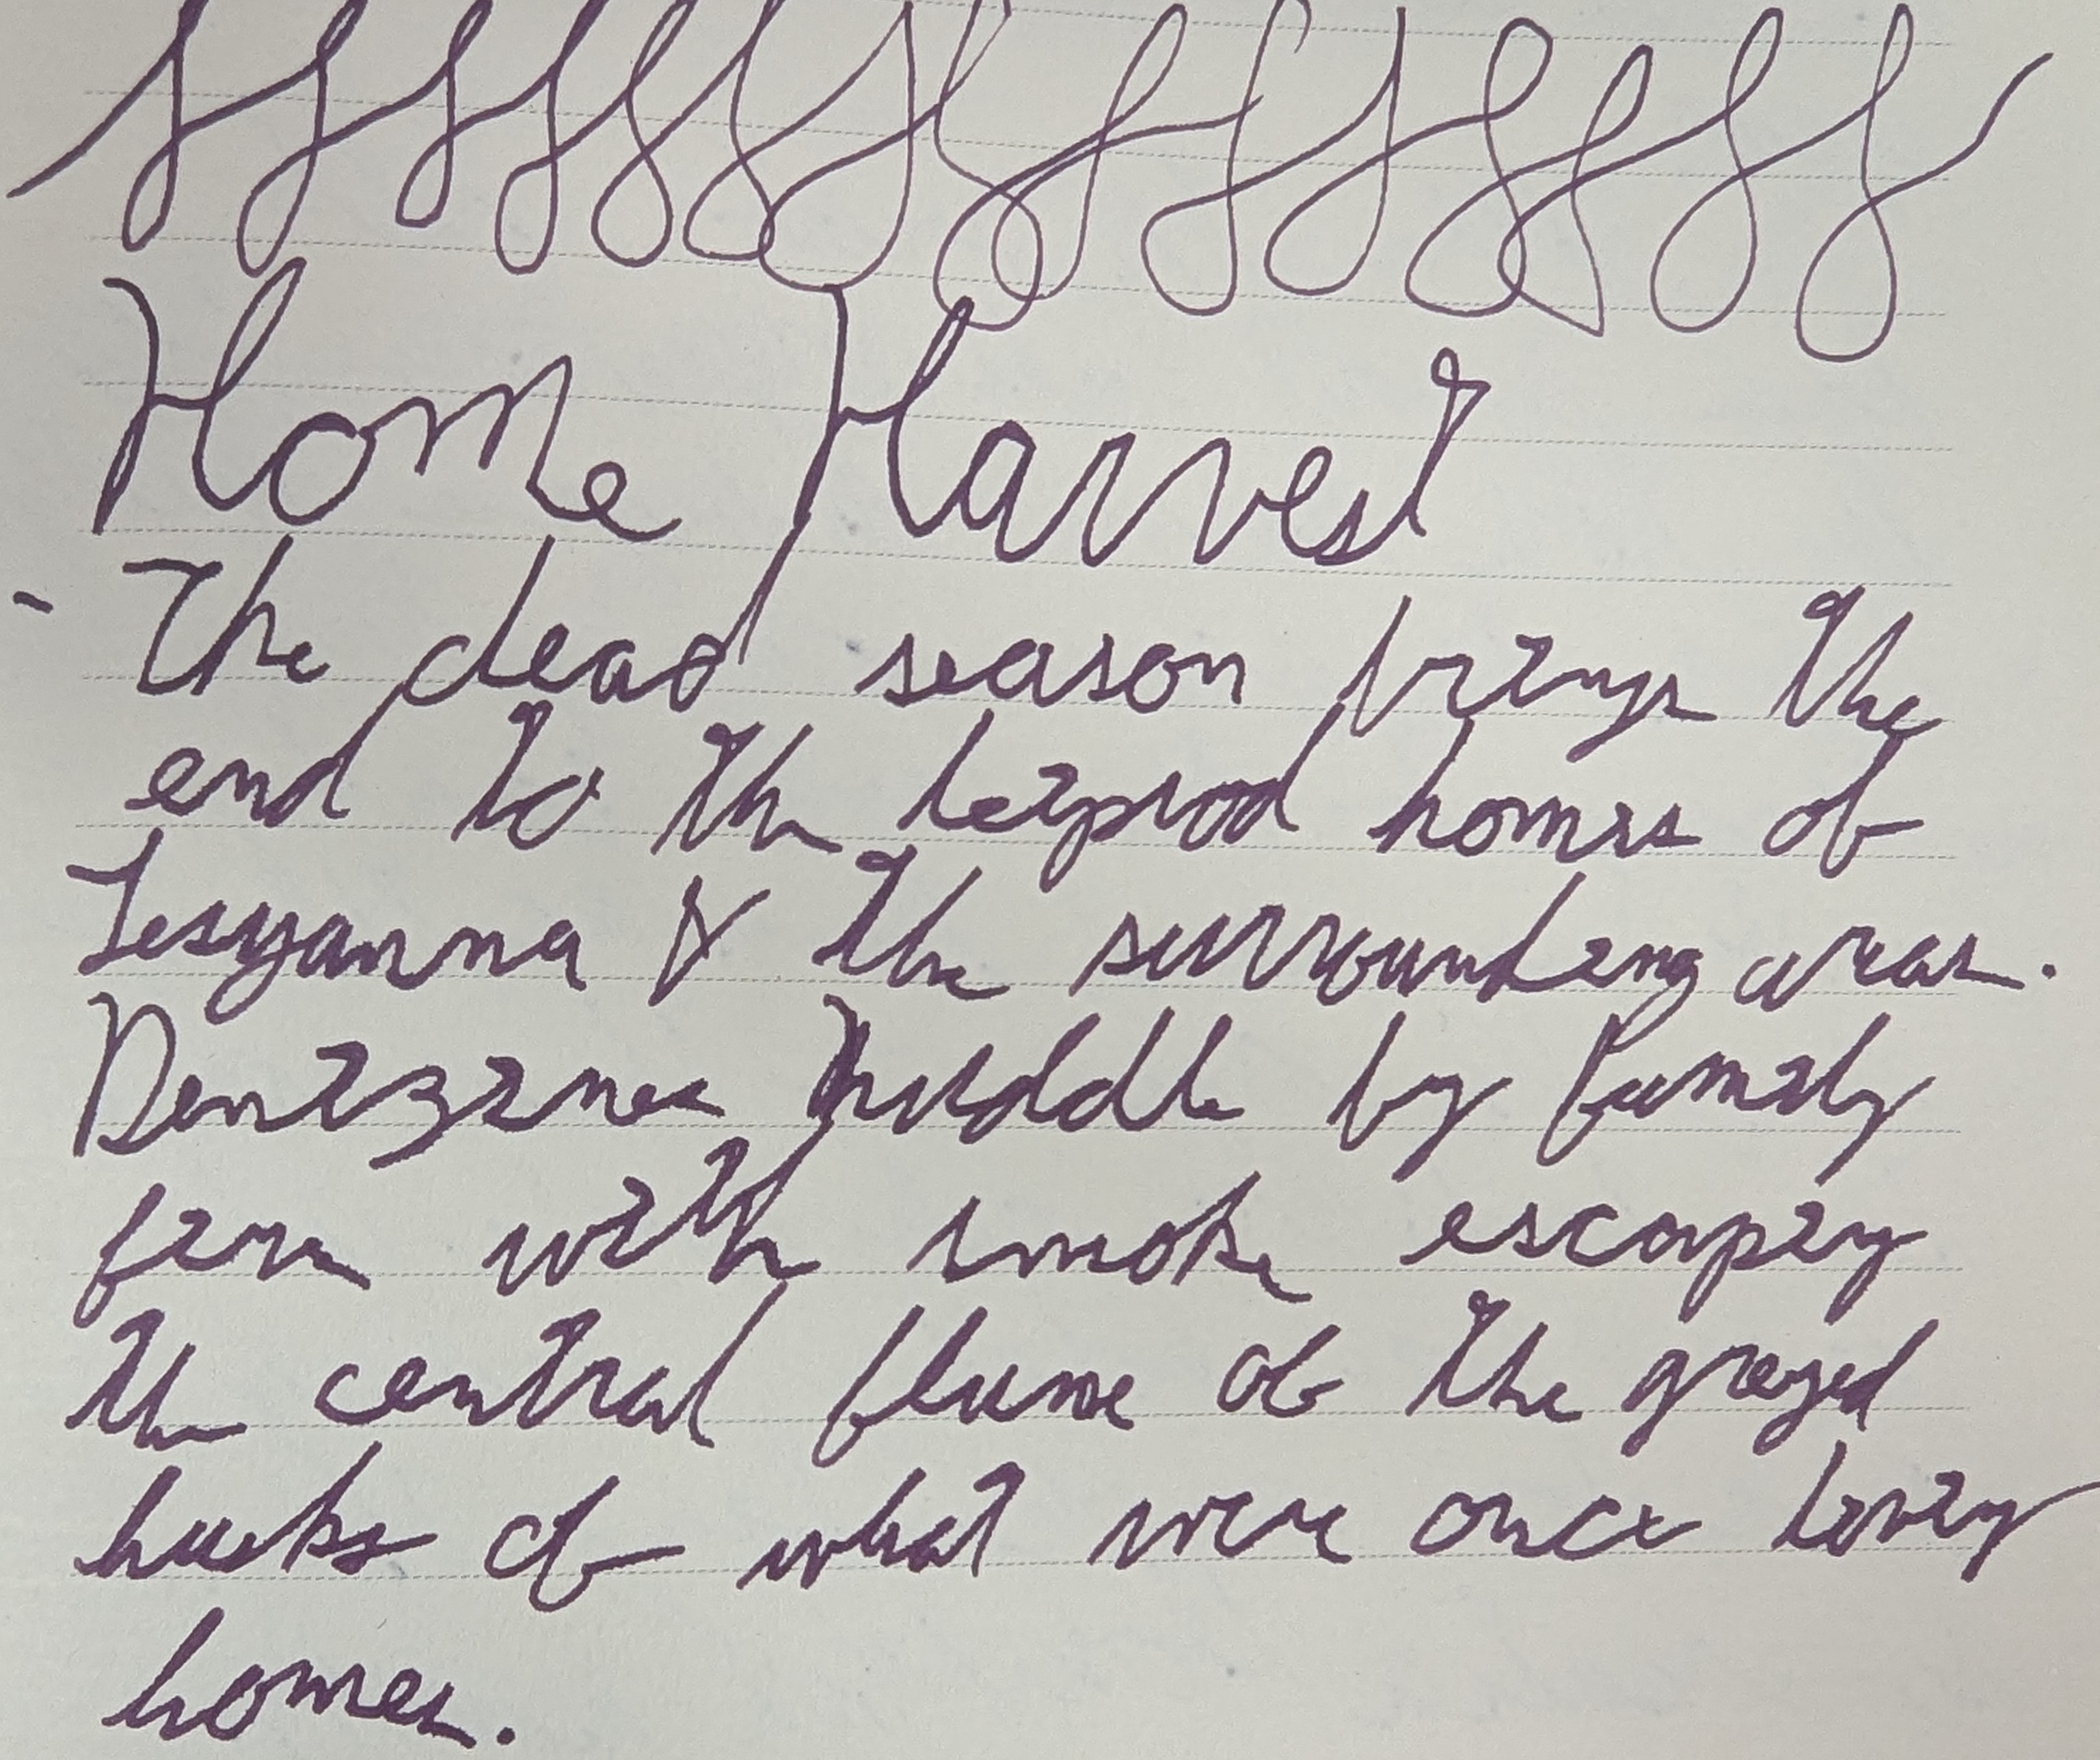 Home Harvest
- The dead season brings the
end to the leiprod homes of
Lesyanna & the surrounding areas.
Denizines huddle by family
fire with smoke escaping
the central flume of the greyed
husks of what were once living
homes.